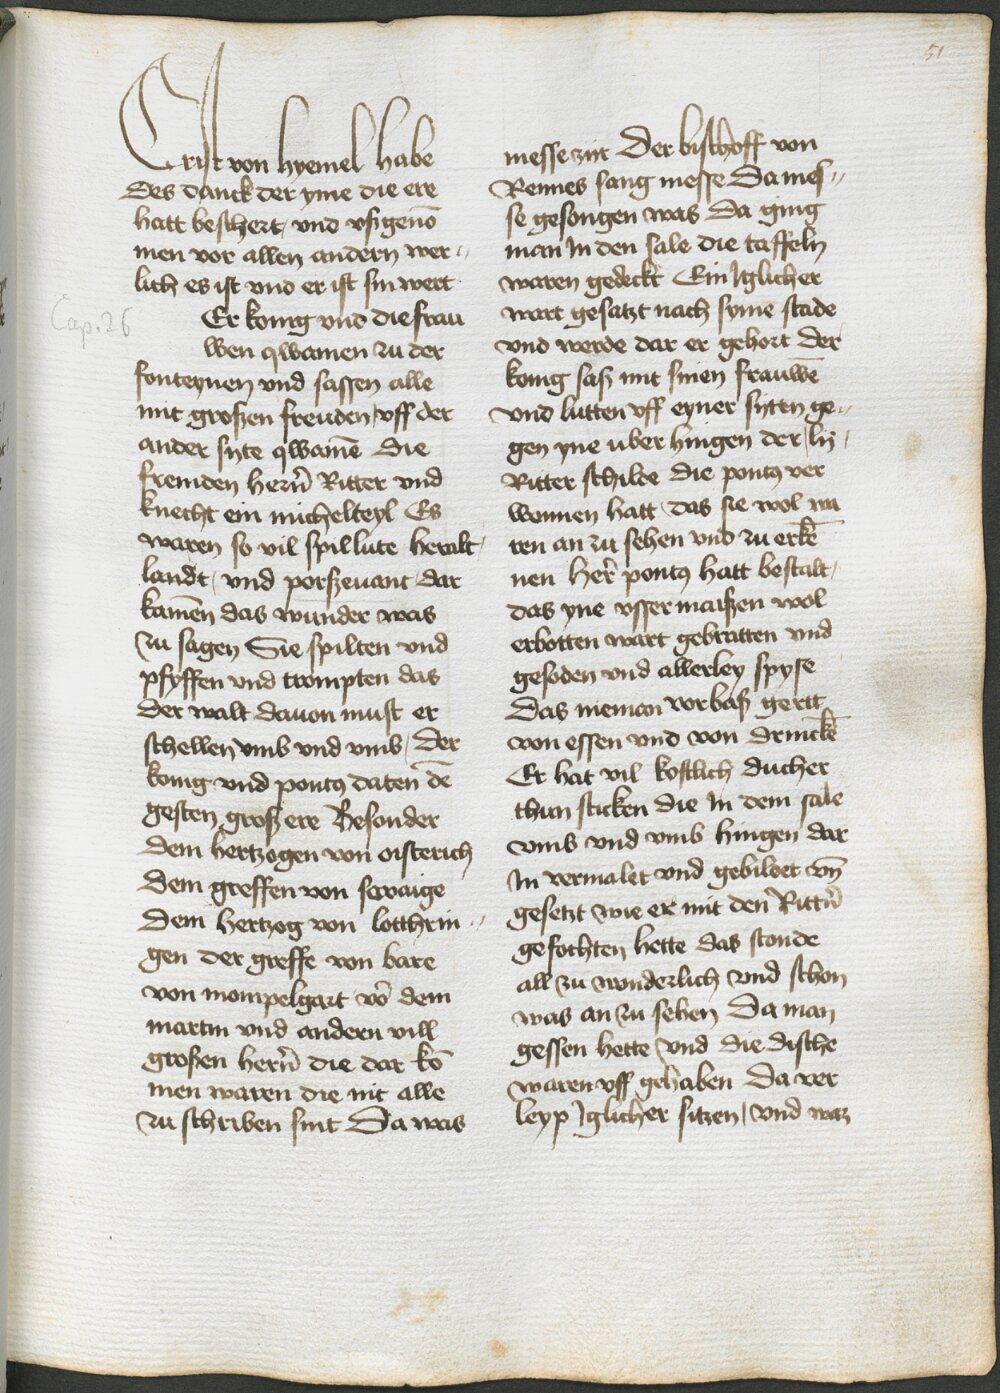 51
Crist von hyemel habe
des danck der yme die ere
hatt beschert, vnd vßgenō
men vor allen andern wer〃
lich es ist vnd er ist sin wert
Cap. 26
Er konig vnd die frau
wen qwamen zu der
fonteynen vnd sassen alle
mit großen freuden, vff der
ander syte qwamē die
fremden herñ Ritter vnd
knecht ein michelteyl Es
waren so vil spillute heralt,
landt, vnd porszeuant dar
kamen das wunder was
zu sagen Sie spilten vnd
pfyffen vnd trompten das
der walt dauon must er
schellen vmb vnd vmb, der
konig vnd pontꝰ daten dē
gesten groß ere Besonder
dem hertzogen von oisterich
dem greffen von
dem hertzog von lotthrin〃
gen der greffe von bare
von mompelgart vō dem
martin vnd andern vill
großen herñ die dar kō
men waren die nit alle
zu schriben sint Da was
messe zijt Der bischoff von
Rennes sang messe Da mes〃
se gesongen was Da ging
man In den sale die taffeln
waren gedeckt Ein Iglicher
wart gesatzt nach syme stade
vnd werde dar er gehort der
konig saß mit sinen frauwē
vnd lutten vff eyner syten ge〃
gen yne uber hingen der lij,
Ritter schilde die pontꝰ ver
wonnen hatt das sie wol wa
ren an zu sehen vnd zu erkē
nen Her pontꝰ hatt bestalt,
das yne vsser maißen wol
erbotten wart gebratten vnd
gesoden vnd allerley spyse
Das nieman vorbaß gertt
von essen vnd von drinckē
Er hat vil kostlich ducher
thun sticken die In dem sale
vmb vnd vmb hingen dar
In vermalet vnd gebildet vñ
gesetzt wie er mit den Rittñ
gefochten hette das stonde
all zu wonderlich vnd schon
was an zu sehen Da man
gessen hette vnd die dische
waren vff gehaben Da ver
leyp Iglicher sitzen, vnd waz